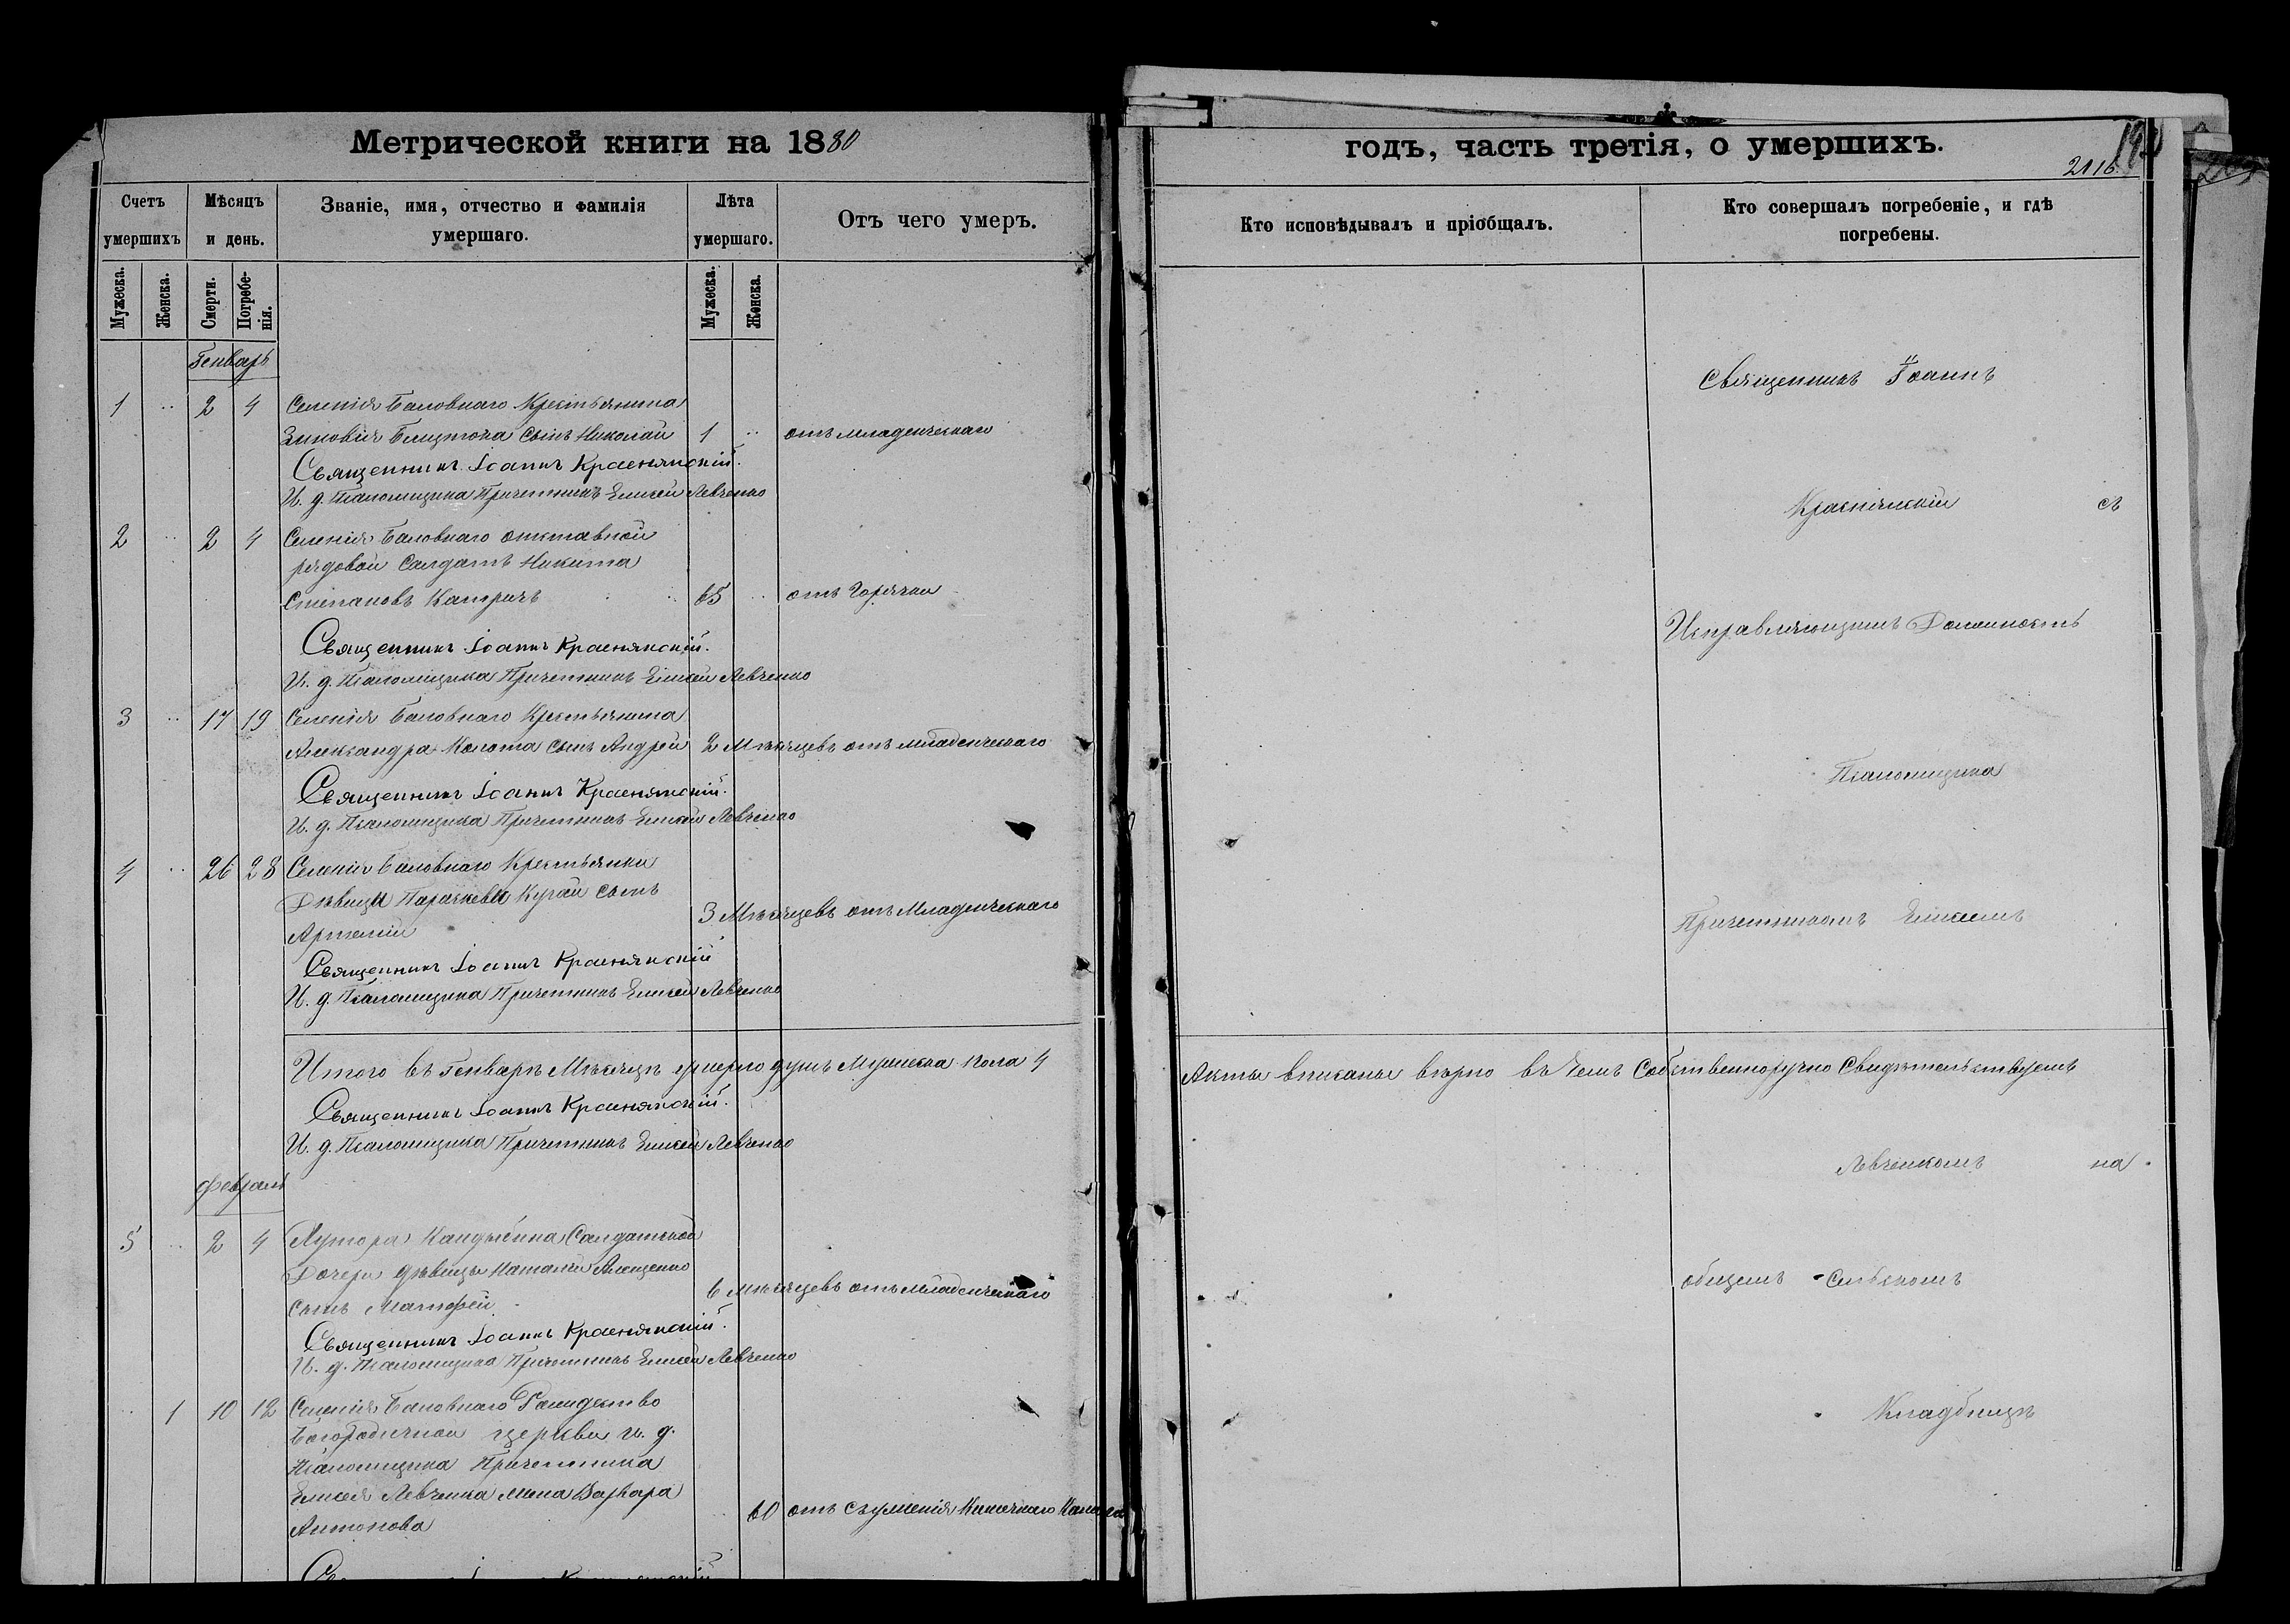 Метрической книги на 1880
годъ, часть третія, о умершихъ.
2116
Счетъ умершихъ
Мѣсяцъ и день.
Званіе, имя, отчество и фамилія умершаго.
Лѣта умершаго.
Отъ чего умеръ.
Кто исповѣдывалъ и пріобщалъ.
Кто совершалъ погребеніе, и гдѣ погребены.
Мужеска.
Женска.
Смерти.
Погребенія.
Мужеска.
Женска.
Генварь
1 .. 2 4 Селенія Баловнаго Крестьянина
Зиновія сынъ Николай 1 .. отъ младенческаго
Священникъ Іоаннъ Краснянскій.
И. д. Псаломщика Причетникъ Елисей Левченко
2 .. 2 4 Селенія Баловнаго отставной
рядовой Салдатъ Никита
Степановъ Катричъ 65 .. отъ Горячки
Священникъ Іоаннъ Краснянскій.
И. д. Псаломщика Причетникъ Елисей Левченко
3 .. 17 19 Селенія Баловнаго Крестьянина
Александра Колота сынъ Андрей 2 Мѣсяцевъ отъ младенческаго
Священникъ Іоаннъ Краснянскій.
И. д. Псаломщика Причетникъ Елисей Левченко
4 .. 26 28 Селенія Баловнаго Крестьянки
Дѣвицы Параскевы Кугай сынъ
Артемій 3 Мѣсяцевъ отъ Младенческаго
Священникъ Іоаннъ Краснянскій
И. д. Псаломщика Причетникъ Елисей Левченко
Итого въ Генварѣ Мѣсяцѣ умерло душъ Мужеска пола 4
Священникъ Іоаннъ Краснянскій.
И. д. Псаломщика Причетникъ Елисей Левченко
Февраль
5 .. 2 4 Хутора Кандыбина Салдатской
Дочери дѣвицы Наталіи
сынъ Матфей 6 мѣсяцевъ отъ младенческаго
Священникъ Іоаннъ Краснянскій.
И. д. Псаломщика Причетникъ Елисей Левченко
.. 1 10 12 Селенія Баловнаго Рождество
Богородичной церкви и. д.
Псаломщика Причетника
Елисея Левченка жена Варвара
Антонова .. 60 отъ съуженія Кишечнаго Канала
Священникъ Іоаннъ
Краснянскій съ
Исправляющимъ Должность
Псаломщика
Причетникомъ Елисеемъ
Акты вписаны вѣрно въ чемъ Собственноручно Свидѣтельствуемъ
Левченкомъ на
общемъ сельскомъ
Кладбищѣ